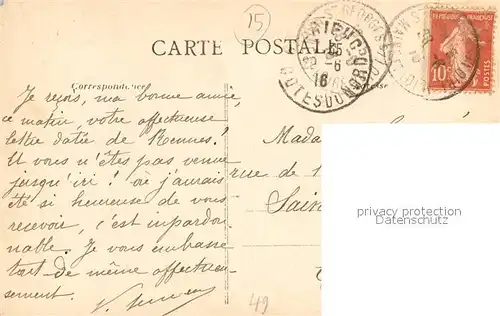 15
CARTE POSTALE
Correspondance
REPUBLIQUE FRANÇAISE
10
ST BRIEUC
15 -6
16
COTES DU NORD
Je reçois, ma bonne amie,
ce matin, votre affectueuse
lettre datée de Rennes!
Et vous n'êtes pas venue
jusqu'ici! où j'aurais
été si heureuse de vous
recevoir, c'est inpardon
nable. Je vous embrasse
tout de même affectueu
sement.
Mada
rue de
Sain
privacy protected
Datenschutz
49